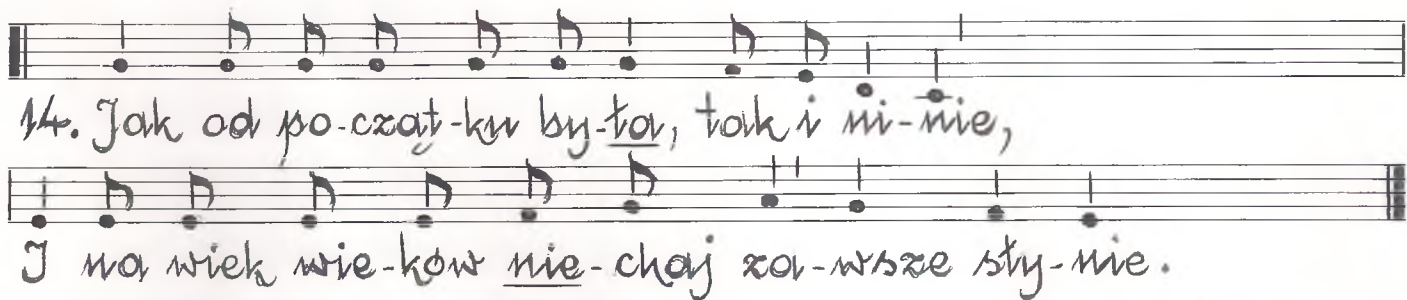 14. Jak od po-cząt-ku by-ła, tak i ni-nie,
I na wiek wie-ków nie-chaj za-wsze sły-nie.